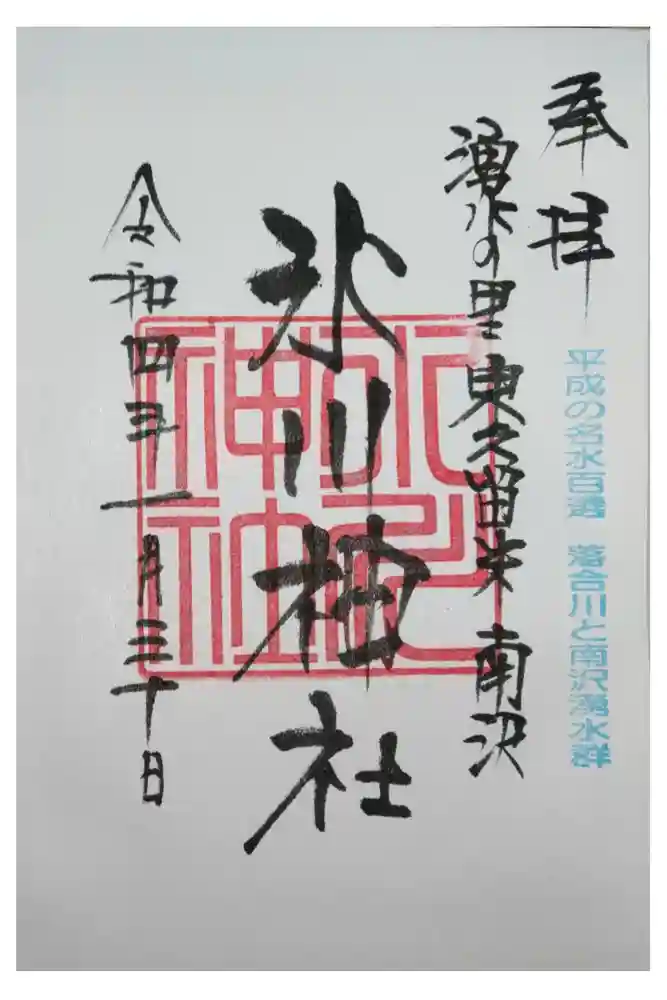 奉拝
平成の名水百選 落合川と南沢湧水群
湧水の里 東久留米 南沢
氷川神社
氷川神社
令和四年一月三十日